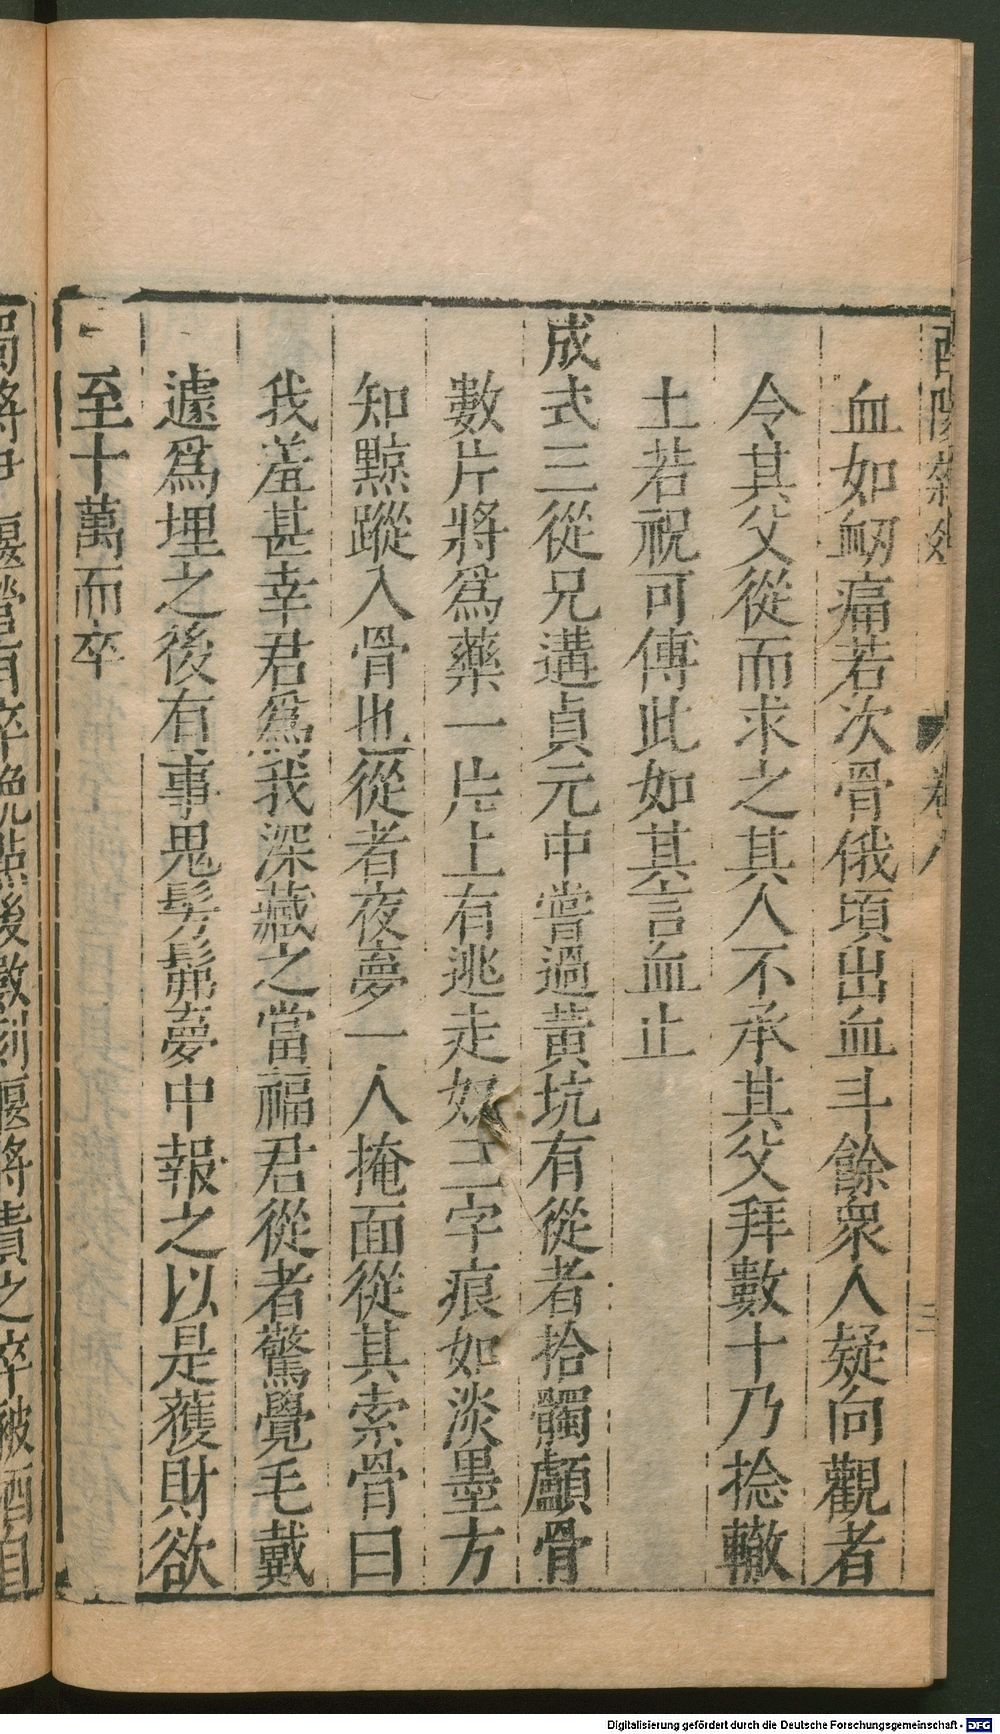 酉陽雜俎 卷八 三
血如衂痛若次骨俄頃出血斗餘衆人疑向觀者
令其父從而求之其人不承其父拜數十乃捻轍
土若祝可傅此如其言血止
成式三從兄遘貞元中嘗過黃坑有從者拾髑顱骨
數片將爲藥一片上有逃走奴三字痕如淡墨方
知黥蹤入骨也從者夜夢一人掩面從其索骨曰
我羞甚幸君爲我深藏之當福君從者驚覺毛戴
遽爲埋之後有事鬼髣髴夢中報之以是獲財欲
至十萬而卒
蜀將尹偃營有卒晚點後數刻偃將責之卒被酒自
Digitalisierung gefördert durch die Deutsche Forschungsgemeinschaft - DFG